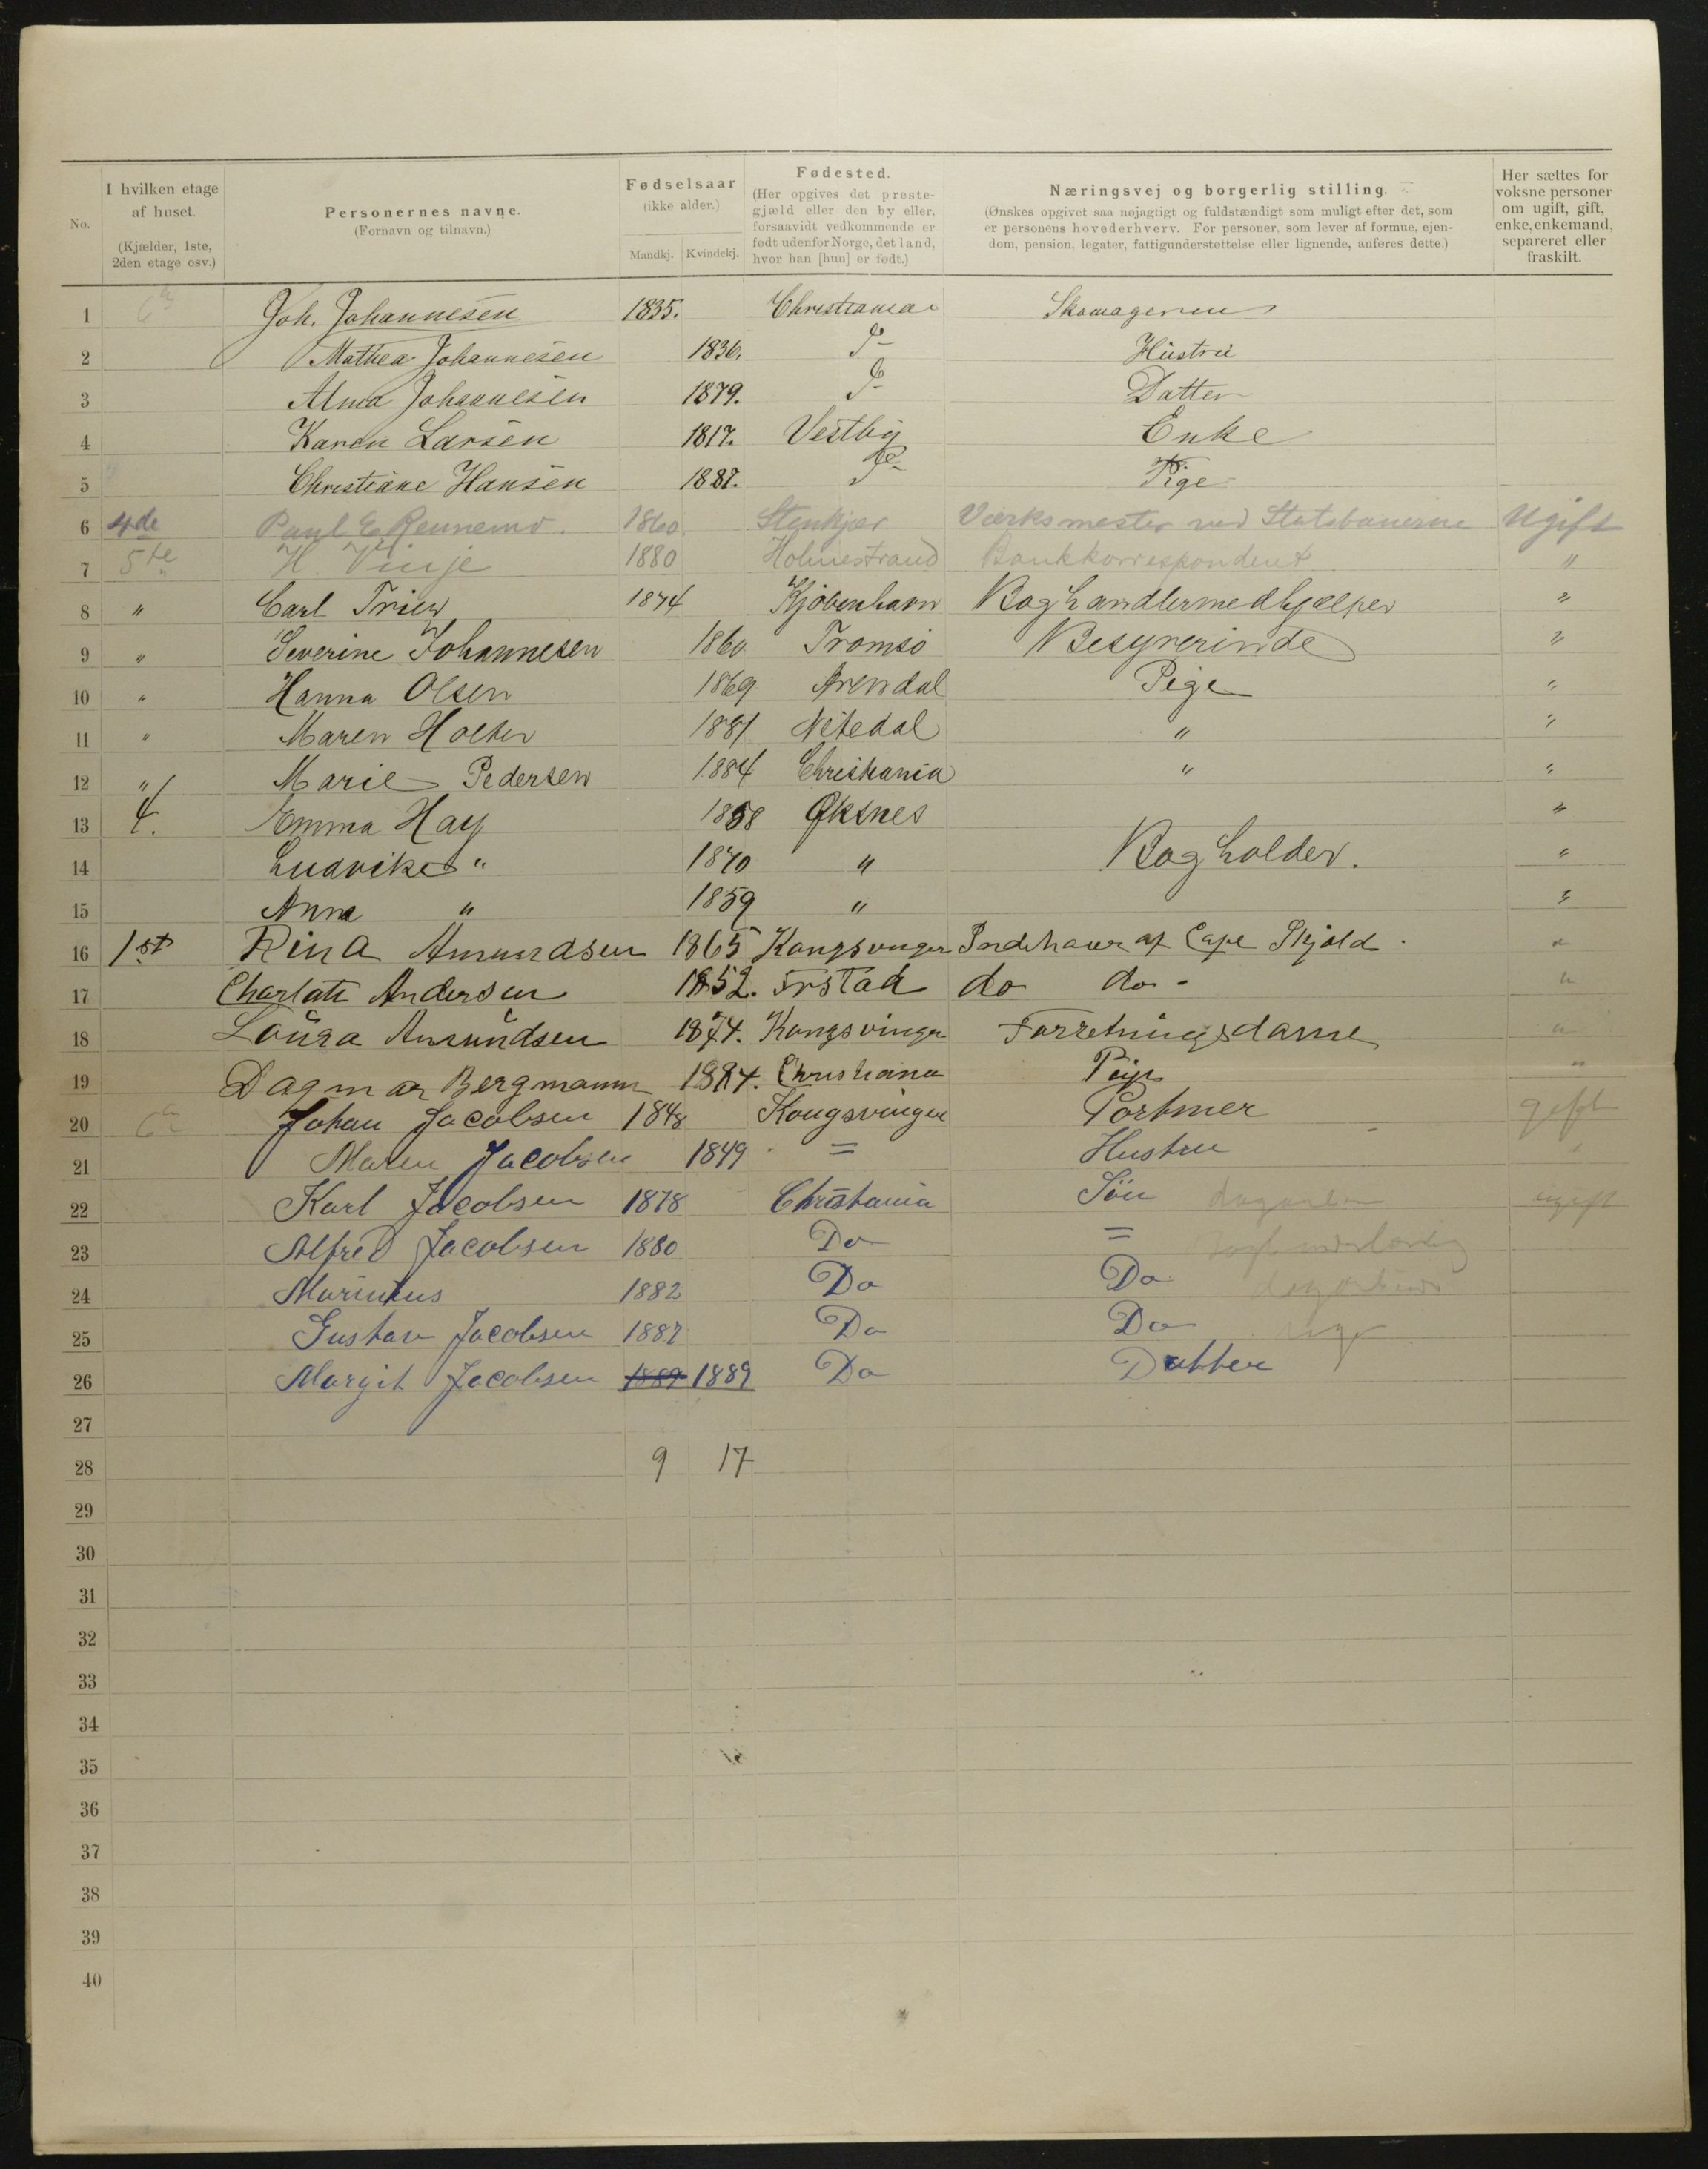 No.
I hvilken etage af huset. (Kjælder, 1ste, 2den etage osv.)
Personernes navne. (Fornavn og tilnavn.)
Fødselsaar (ikke alder.) Mandkj. Kvindekj.
Fødested. (Her opgives det prestegjæld eller den by eller, forsaavidt vedkommende er født udenfor Norge, det land, hvor han [hun] er født.)
Næringsvej og borgerlig stilling. (Ønskes opgivet saa nøjagtigt og fuldstændigt som muligt efter det, som er personens hovederhverv. For personer, som lever af formue, ejendom, pension, legater, fattigunderstøttelse eller lignende, anføres dette.)
Her sættes for voksne personer om ugift, gift, enke, enkemand, separeret eller fraskilt.
1 Joh. Johannesen 1835. Christiania
2 Mathea Johannesen 1836. Hustru
3 Alma Johannesen 1879. Datter
4 Karen Larsen 1817. Vestby Enke
5 Christiane Hansen 1887. Pige
6 4de Paul E Rennemo. 1860 Stenkjær Værksmester ved Statsbanerne Ugift
7 5te H. Vinje 1880 Holmestrand Bankkorrespondent "
8 " Carl 1874 Kjøbenhavn Boghandlermedhjælper "
9 " Severine Johannesen 1860 Tromsø Besyrerinde "
10 " Hanna Olsen 1869 Arendal Pige "
11 " Maren Holter 1881 Nitedal " "
12 " Marie Pedersen 1884 Christiania " "
13 4. Emma Hay 1858 Øksnes "
14 Ludvikke " 1870 " Bogholder. "
15 Anna " 1859 " "
16 1st Rina Amundsen 1865 Kongsvinger Indehaver af Cafe Skjold "
17 Charlotte Andersen 1852. do do "
18 Laura Amundsen 1874. Kongsvinger Forretningsdame "
19 Dagmar Bergmann 1884. Christiania Pige "
20 Johan Jacobsen 1848 Kongsvinger Portner gift
21 Maren Jacobsen 1849 = Hustru "
22 Karl Jacobsen 1878 Christiania Søn ugift
23 Alfred Jacobsen 1880 Do =
24 Marinius 1882 Do Do
25 Gustav Jacobsen 1887 Do Do
26 Margit Jacobsen 1889 1889 Do Datter
27
28 9 17
29
30
31
32
33
34
35
36
37
38
39
40